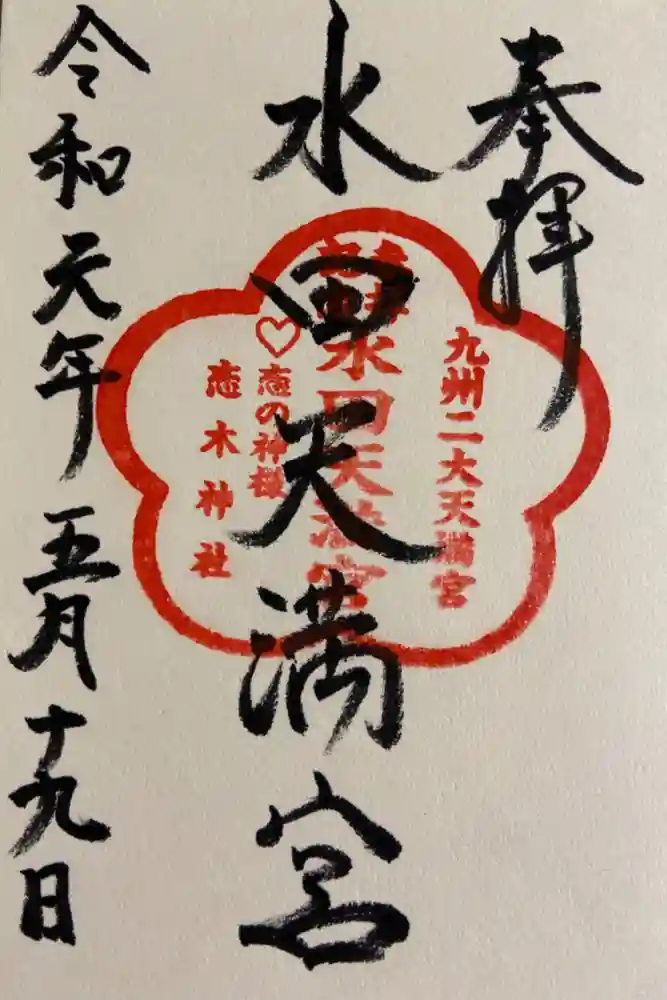 奉拝
九州二大天満宮
水田天満宮
水田天満宮
恋の神様
恋木神社
令和元年五月十九日